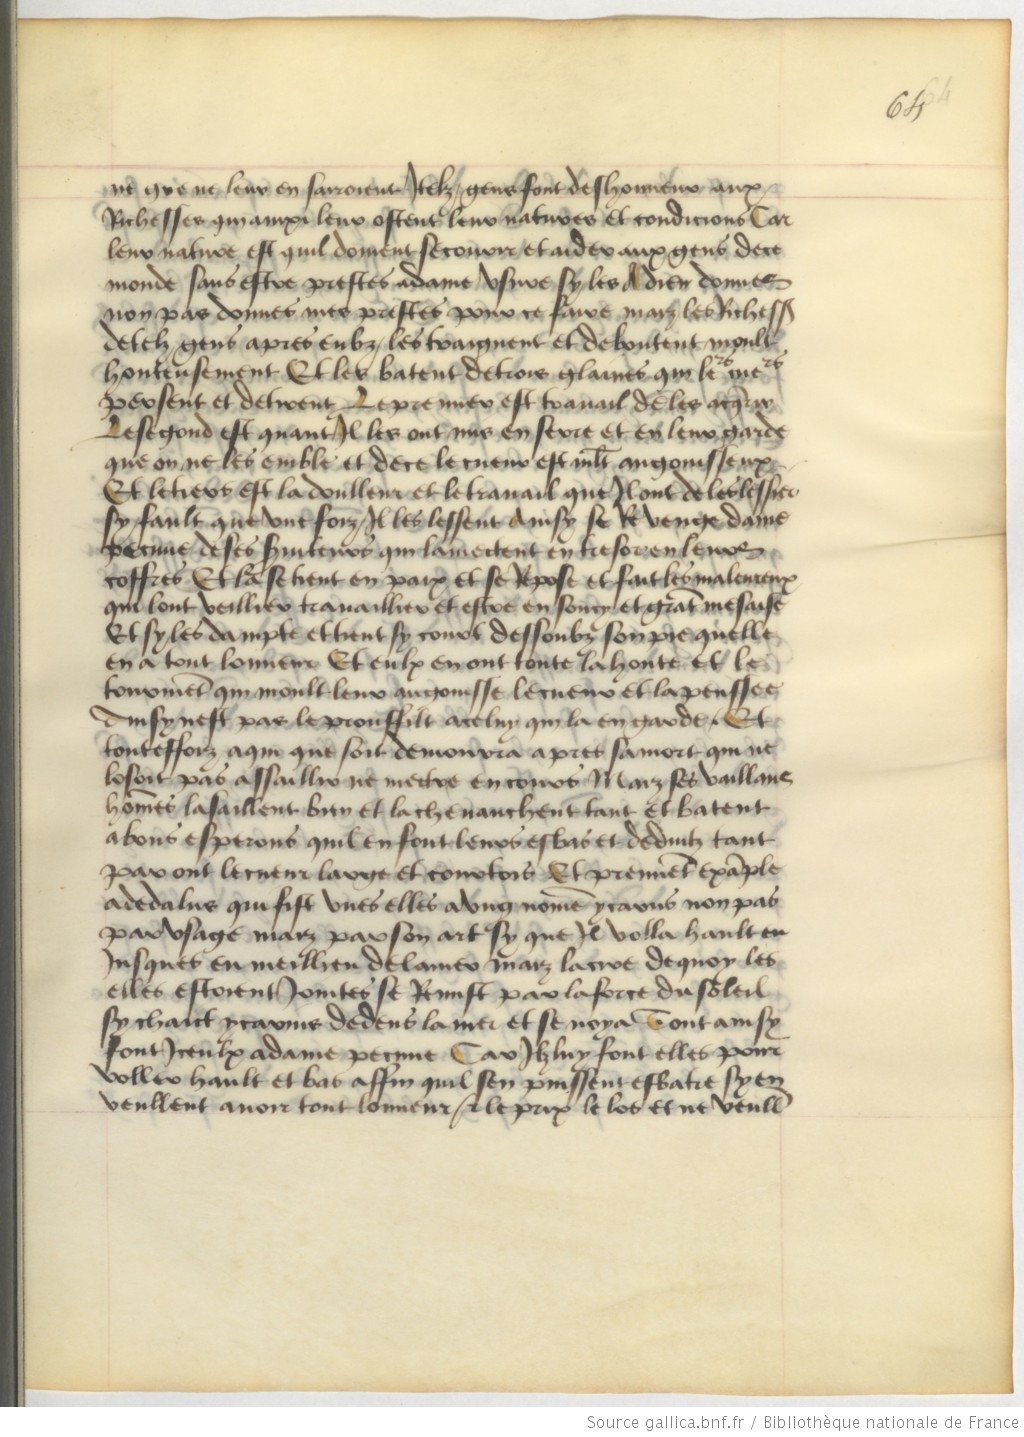 64 64
ne que ne leur en sarroient Itelz gens font deshonneur aux
Richesses qui ainxi leur ostent leur natures et condicions Car
leur nature est quil doivent secourir et aidier aux gens de ce
monde sans estre prestes a dame usure sy les a dieu donnes
non pas donnes mes prestes pour ce faire maiz les Richess
de telz gens apres eubz les traignent et deboutent moult
honteusement Et les batent de trois glaives qui le rs me rs
persent et detirent Le premier est travail de les acq̃rir
Le segond est quant Il les ont mis en serre et en leur garde
que on ne les emble et de ce le cueur est mlt angoisseux
Et le tiers est la doulleur et le travail que Il ont de les lessier
sy fault que une foiz Il les lessent Ainsy se Revenge dame
pecune de ses suiteurs qui la mectent en tresor en leurs
coffres Et la se tient en paix et se Repose et fait les maleureux
qui lont veillier travaillier et estre en soucy et grãt mesaise
Et sy les dampte et tient sy court dessoubz son pie quelle
en a tout lonneur Et eulx en ont toute la honte et le
tourmẽt qui moult leur angoisse le cueur et la penssee
Ainsy nest pas le prouffilt a celuy qui la en garde Et
touteffoiz a qui que soit demourra apres sa mort qui ne
losoit pas assaillir ne mectre en cours Maiz ses vaillans
hõmes lasaillent bien et la chevauchent tant et batent
a bons esperons quil en font leurs esbas et deduitz tant
par ont le cueur large et courtois Et prennẽt exãple
a dedalus qui fist unes elles a ung nomẽ ycarus non pas
par usage maiz par son art sy que Il volla hault en
Jusques en meillieu de la mer maiz la cire de quoy les
elles estoient Jointes se Remist par la force du soleil
sy chait ycarius dedens la mer et se noya Tout ainsy
font Iceulx a dame pecune Car Ilz luy font elles pour
voller hault et bas affin quil sen puissent esbatre sy en
veullent avoir tout lonneur & le prix le los et ne veull
Source gallica.bnf.fr / Bibliothèque nationale de France